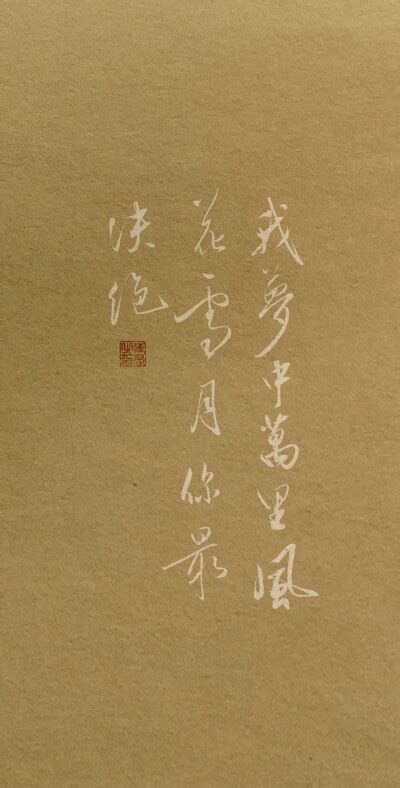 我夢中萬里風
花雪月你最
決絕